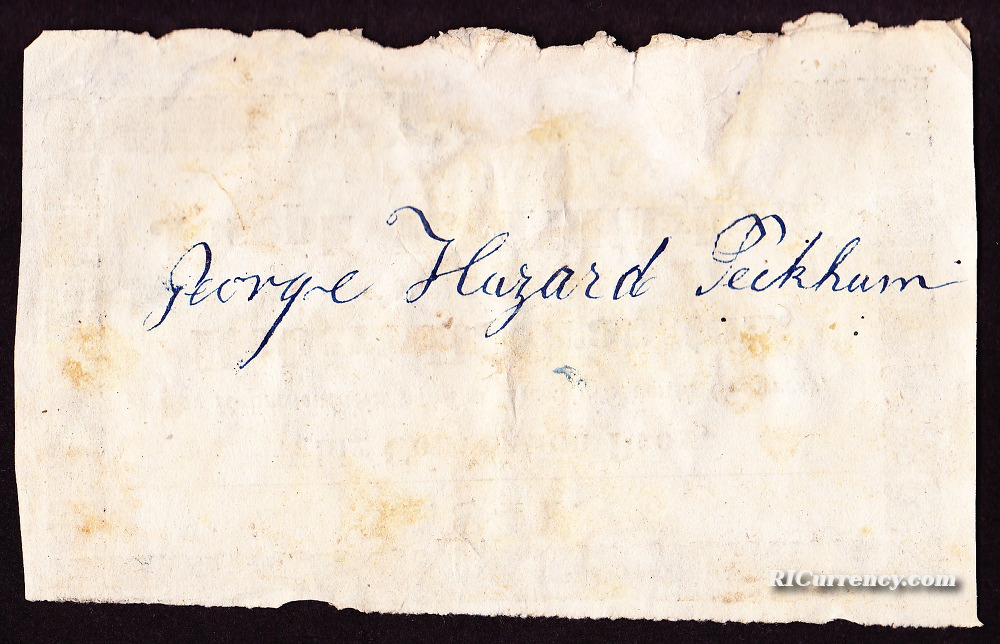 George Hazard Peckham
RICurrency.com